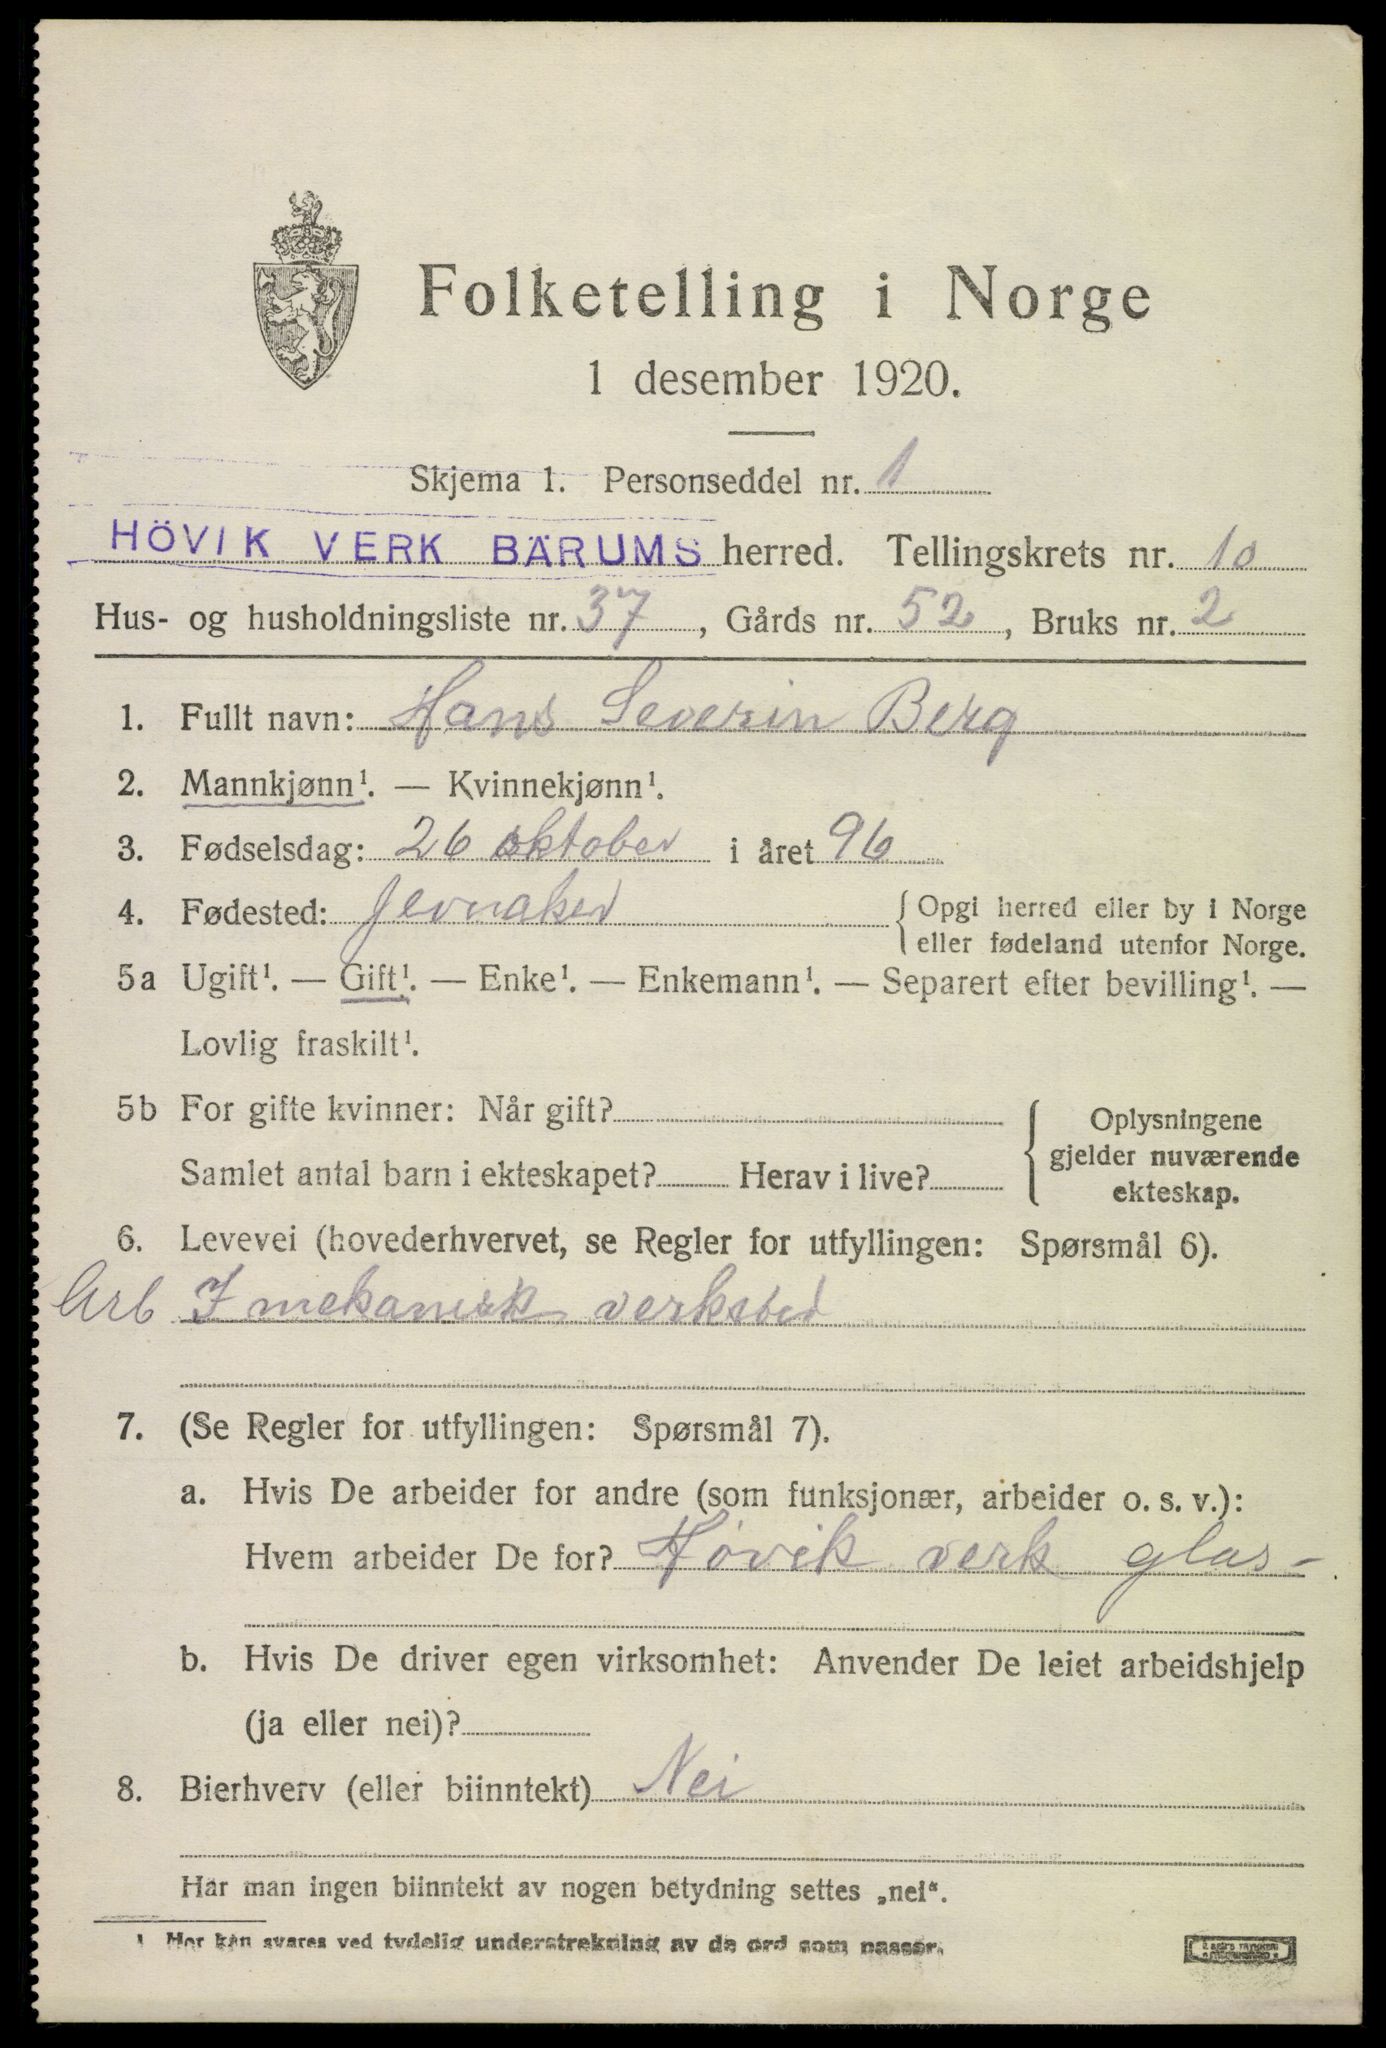 Folketelling i Norge
1 desember 1920.
Skjema 1. Personseddel nr. 1
HÖVIK VERK BÄRUMS herred. Tellingskrets nr. 10
Hus- og husholdningsliste nr. 37, Gårds nr. 52, Bruks nr. 2
1. Fullt navn: Hans Severin Berg
2. Mannkjønn¹. — Kvinnekjønn¹.
3. Fødselsdag: 26 oktober i året 96
4. Fødested: Jevnaker { Opgi herred eller by i Norge
eller fødeland utenfor Norge.
5a Ugift¹. — Gift¹. — Enke¹. — Enkemann¹. — Separert efter bevilling¹. —
Lovlig fraskilt¹.
5b For gifte kvinner: Når gift?
Samlet antal barn i ekteskapet? Herav i live?
{ Oplysningene
gjelder nuværende
ekteskap.
6. Levevei (hovederhvervet, se Regler for utfyllingen: Spørsmål 6).
Arb I mekanisk verksted
7. (Se Regler for utfyllingen: Spørsmål 7).
a. Hvis De arbeider for andre (som funksjonær, arbeider o. s. v.):
Hvem arbeider De for? Høvik verk glas-
b. Hvis De driver egen virksomhet: Anvender De leiet arbeidshjelp
(ja eller nei)?
8. Bierhverv (eller biinntekt) Nei
Har man ingen biinntekt av nogen betydning settes „nei“.
¹ Her kan svares ved tydelig understrekning av de ord som passer.